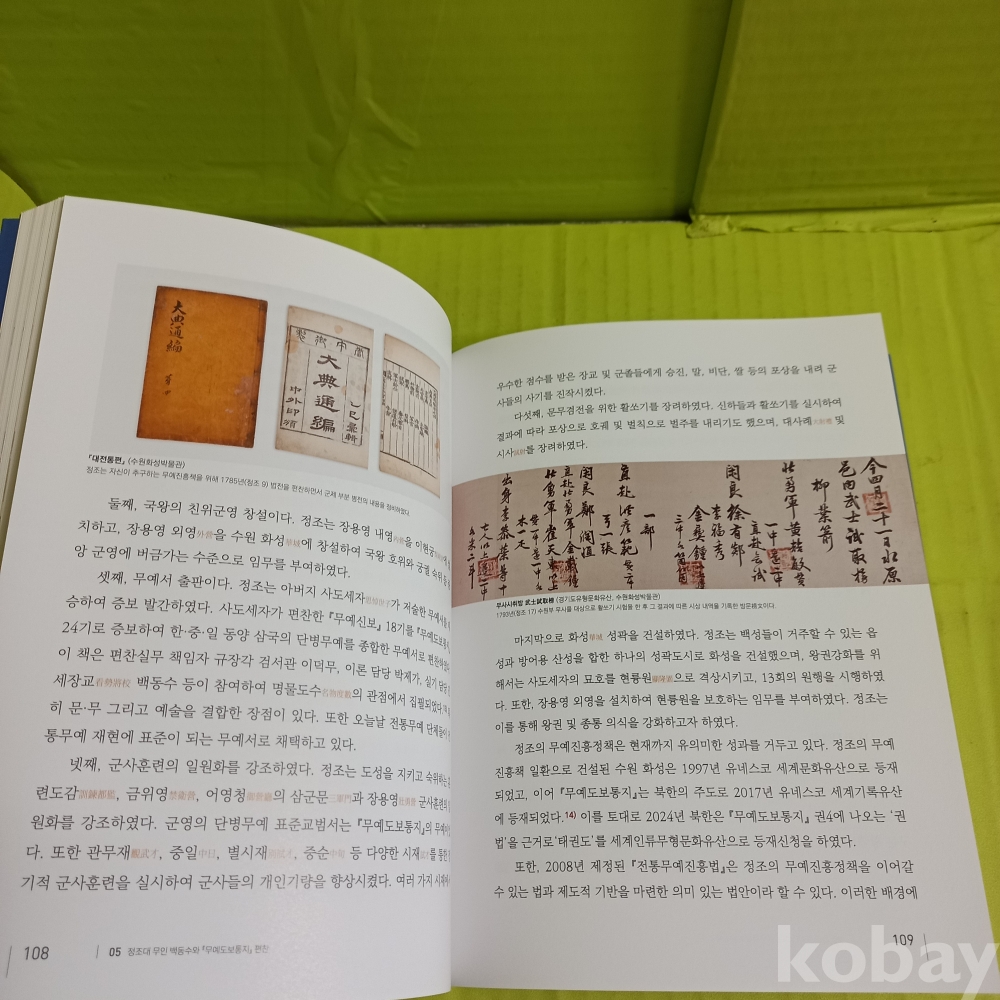 大典通編
當中御製
乙巳彙輯
大典通編
中外印頒
『대전통편』 (수원화성박물관)
정조는 자신이 추구하는 무예진흥책을 위해 1785년(정조 9) 법전을 편찬하면서 군제 부문 법전의 내용을 정비하였다
둘째, 국왕의 친위군영 창설이다. 정조는 장용영 내영을 이현궁
치하고, 장용영 외영外營을 수원 화성華城에 창설하여 국왕 호위와 궁궐 숙위
앙 군영에 버금가는 수준으로 임무를 부여하였다.
셋째, 무예서 출판이다. 정조는 아버지 사도세자思悼世子가 저술한 무예서를
승하여 증보 발간하였다. 사도세자가 편찬한 『무예신보』 18기를 『무예도보통
24기로 증보하여 한·중·일 동양 삼국의 단병무예를 종합한 무예서로 편찬하였다.
이 책은 편찬실무 책임자 규장각 검서관 이덕무, 이론 담당 박제가, 실기 담당
세장교看勢將校 백동수 등이 참여하여 명물도수名物度數의 관점에서 집필되었다.
히 문·무 그리고 예술을 결합한 장점이 있다. 또한 오늘날 전통무예 단체들이
통무예 재현에 표준이 되는 무예서로 채택하고 있다.
넷째, 군사훈련의 일원화를 강조하였다. 정조는 도성을 지키고 숙위하는
련도감訓鍊都監, 금위영禁衛營, 어영청御營廳의 삼군문三軍門과 장용영壯勇營 군사훈련의
원화를 강조하였다. 군영의 단병무예 표준교범서는 『무예도보통지』의 무예
다. 또한 관무재觀武才, 중일中日, 별시재別試才, 중순中旬 등 다양한 시재試才를 통한
기적 군사훈련을 실시하여 군사들의 개인기량을 향상시켰다. 여러 가지 시재에서
108 05 정조대 무인 백동수와 『무예도보통지』 편찬
우수한 점수를 받은 장교 및 군졸들에게 승진, 말, 비단, 쌀 등의 포상을 내려 군
사들의 사기를 진작시켰다.
다섯째, 문무겸전을 위한 활쏘기를 장려하였다. 신하들과 활쏘기를 실시하여
결과에 따라 포상으로 호궤 및 벌칙으로 벌주를 내리기도 했으며, 대사례大射禮 및
시사試射를 장려하였다.
今四月二十一日水原
邑內武士試取榜
柳葉箭
壯勇軍黃
一中
直赴会試
閑良徐有郁
李福秀
三中
弓一張
一部
閑良鄭潤恒
壯勇軍崔天
木一疋
出身李
무사시취방 武士試取榜 (경기도유형문화유산, 수원화성박물관)
1793년(정조 17) 수원부 무사를 대상으로 활쏘기 시험을 한 후 그 결과에 따른 시상 내역을 기록한 방문榜文이다.
마지막으로 화성華城 성곽을 건설하였다. 정조는 백성들이 거주할 수 있는 읍
성과 방어용 산성을 합한 하나의 성곽도시로 화성을 건설했으며, 왕권강화를 위
해서는 사도세자의 묘호를 현륭원顯隆園으로 격상시키고, 13회의 원행을 시행하였
다. 또한, 장용영 외영을 설치하여 현륭원을 보호하는 임무를 부여하였다. 정조는
이를 통해 왕권 및 종통 의식을 강화하고자 하였다.
정조의 무예진흥정책은 현재까지 유의미한 성과를 거두고 있다. 정조의 무예
진흥책 일환으로 건설된 수원 화성은 1997년 유네스코 세계문화유산으로 등재
되었고, 이어 『무예도보통지』는 북한의 주도로 2017년 유네스코 세계기록유산
에 등재되었다.14) 이를 토대로 2024년 북한은 『무예도보통지』 권4에 나오는 '권
법'을 근거로 '태권도'를 세계인류무형문화유산으로 등재신청을 하였다.
또한, 2008년 제정된 『전통무예진흥법』은 정조의 무예진흥정책을 이어갈
수 있는 법과 제도적 기반을 마련한 의미 있는 법안이라 할 수 있다. 이러한 배경에
109
kobay